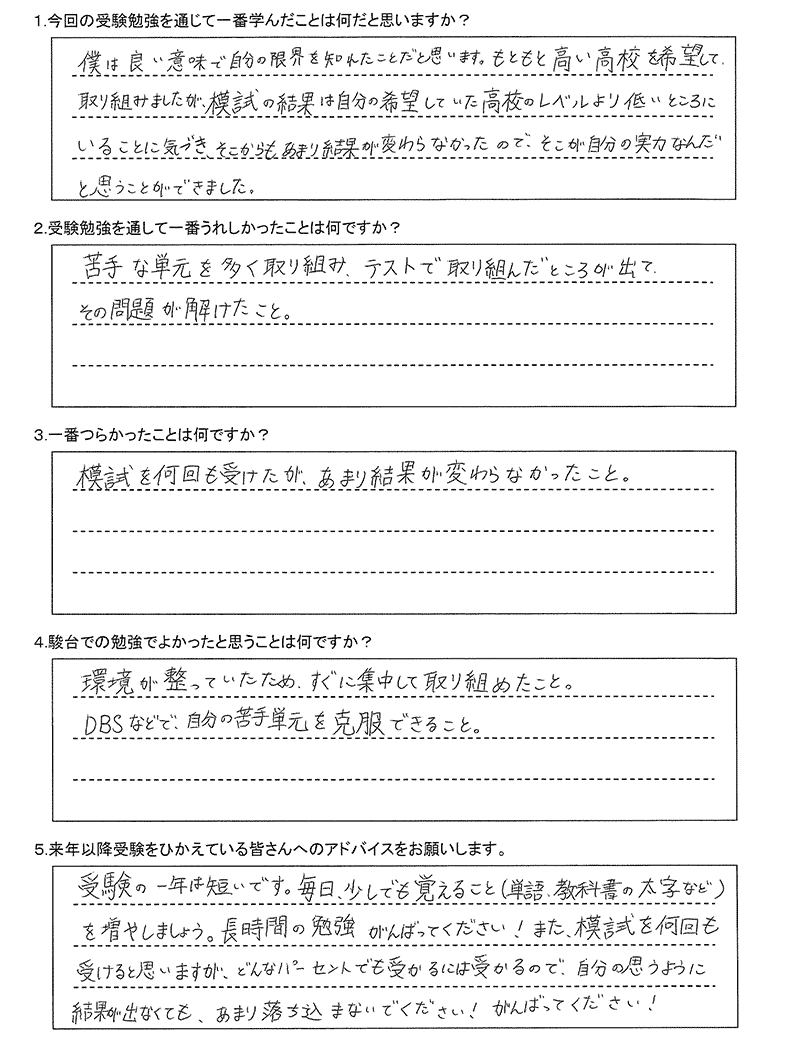 1.今回の受験勉強を通じて一番学んだことは何だと思いますか？
僕は良い意味で自分の限界を知れたことだと思います。もともと高い高校を希望して、
取り組みましたが、模試の結果は自分の希望していた高校のレベルより低いところに
いることに気づき、そこからもあまり結果が変わらなかったので、そこが自分の実力なんだ
と思うことができました。
2.受験勉強を通して一番うれしかったことは何ですか？
苦手な単元を多く取り組み、テストで取り組んだところが出て、
その問題が解けたこと。
3.一番つらかったことは何ですか？
模試を何回も受けたが、あまり結果が変わらなかったこと。
4.駿台での勉強でよかったと思うことは何ですか？
環境が整っていたため、すぐに集中して取り組めたこと。
DBSなどで、自分の苦手単元を克服できること。
5.来年以降受験をひかえている皆さんへのアドバイスをお願いします。
受験の一年は短いです。毎日、少しでも覚えること(単語、教科書の太字など)
を増やしましょう。長時間の勉強がんばってください！また、模試を何回も
受けると思いますが、どんなパーセントでも受かるには受かるので、自分の思うように
結果が出なくても、あまり落ち込まないでください！がんばってください！